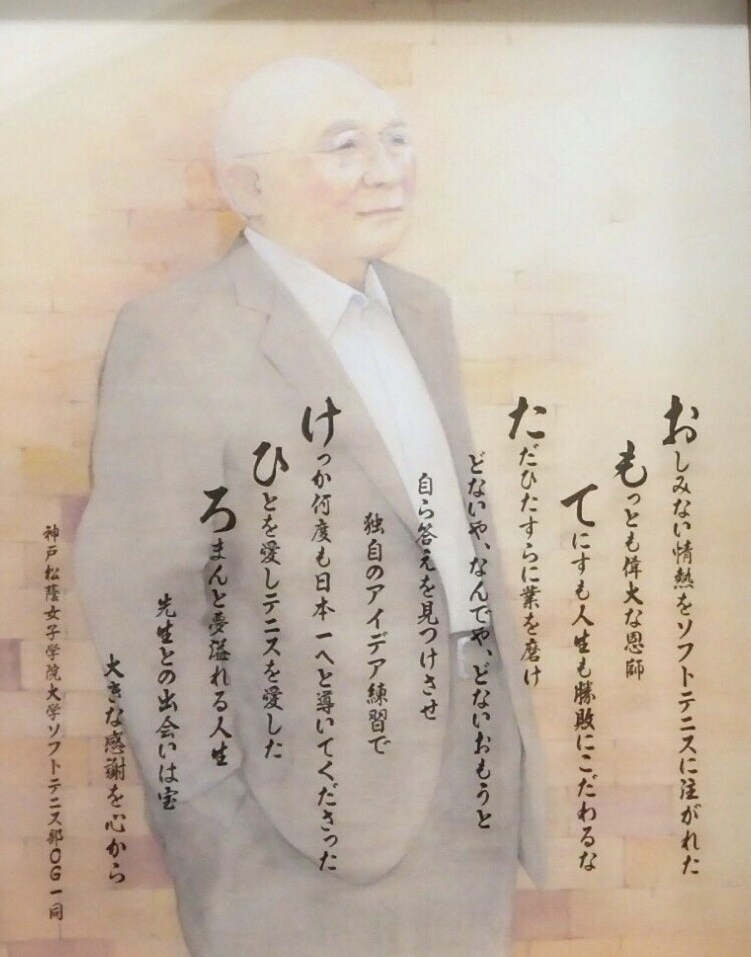 おしみない情熱をソフトテニスに注がれた
もっとも偉大な恩師
てにすも人生も勝敗にこだわるな
ただひたすらに業を磨け
どないや、なんでや、どないおもうと
自ら答えを見つけさせ
独自のアイデア練習で
けっか何度も日本一へと導いてくださった
ひとを愛しテニスを愛した
ろまんと夢溢れる人生
先生との出会いは宝
大きな感謝を心から
神戸松蔭女子学院大学ソフトテニス部OG一同